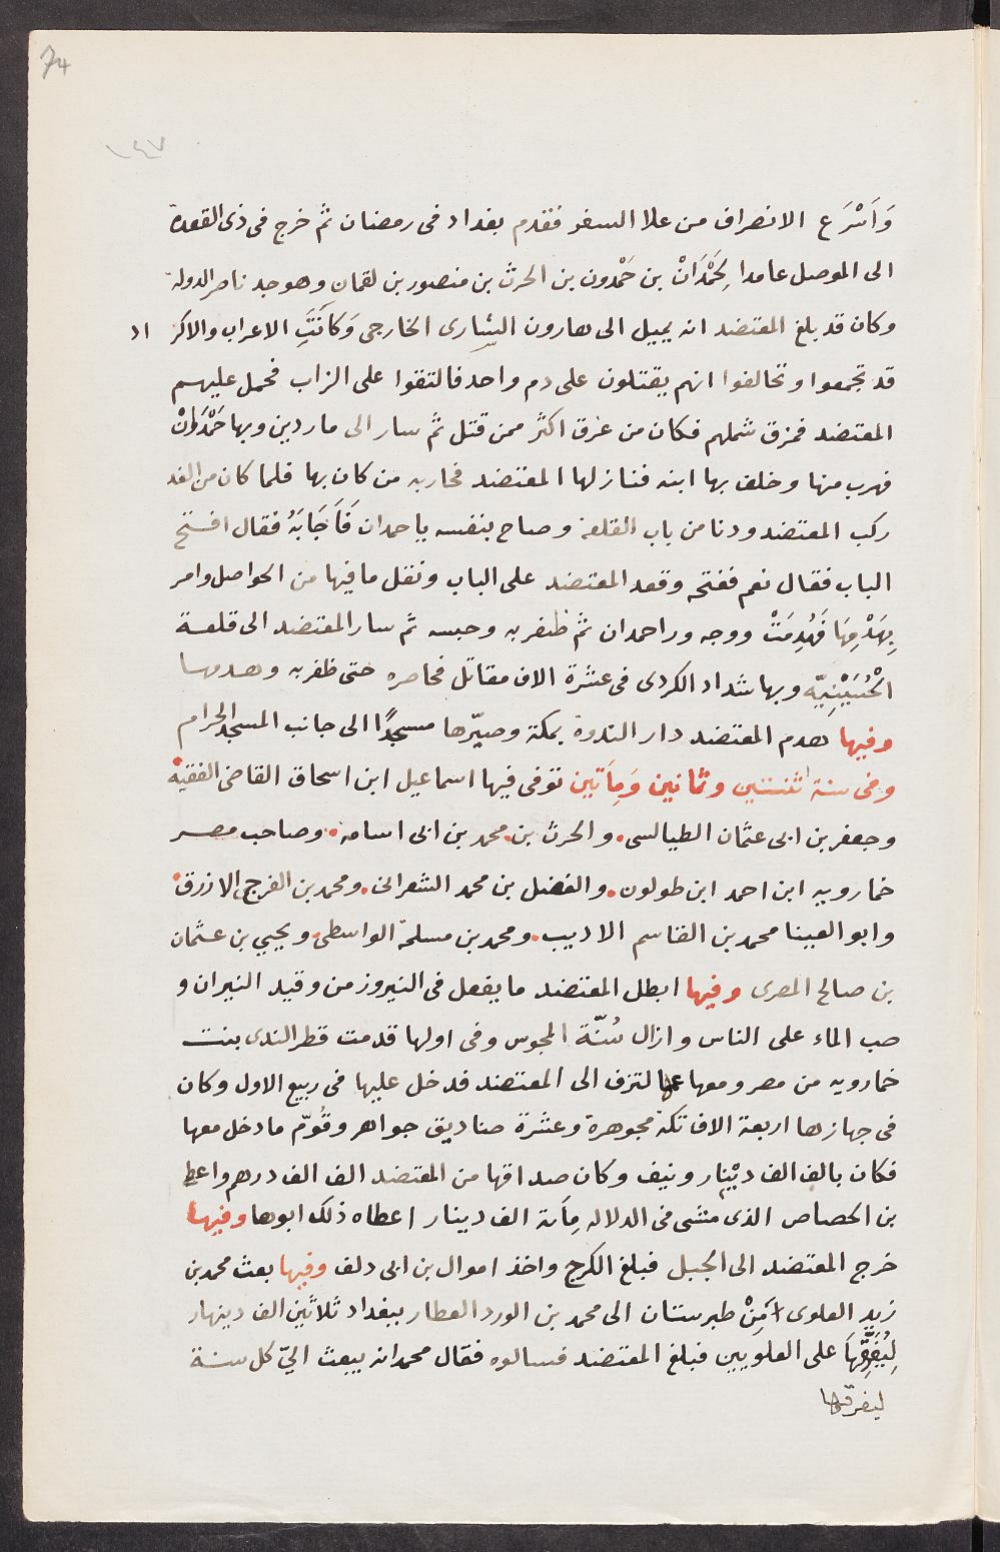 74
١٤٧
وَاَسْرَع الانصراف من علا السفر فقدم بغداد فى رمضان ثم خرج فى ذى القعدة
الى الموصل عامدا لِحَمْدَانْ بن حَمْدون بن الحرث بن منصور بن لقمان وهو جد ناصر الدولة
وكان قد بلغ المعتضد انه يميل الى هارون الشارى الخارجى وَكانَتَِ الاعراب والاكر اد
قد تجمعوا وتحالفوا انهم يقتلون على دم واحد فالتقوا على الزاب فحمل عليهم
المعتضد فمزق شملهم فكان من غرق اكثر ممن قتل ثم سار الى ماردين وبها حَمْدَانْ
فهرب منها وخلف بها ابنه فنازلها المعتضد فحاربه من كان بها فلما كان من الغد
ركب المعتضد ودنا من باب القلعة وصاح بنفسه ياحمدان فَاَجَابَهُ فقال افتح
الباب فقال نعم ففتحه وقعد المعتضد على الباب ونقل مافيها من الحواصل وامر
بِهَدْمِهَا فَهُدِمَتْ ووجه ورا حمدان ثم ظفر به وحبسه ثم سار المعتضد الى قلعة
الْحُسَيْنِيّه وبها شداد الكردى فى عشرة الاف مقاتل فحاصره حتى ظفر به وهدمها
وفيها هدم المعتضد دار الندوة بمكة وصيّرها مسجدًا الى جانب المسجد الحرام
وفى سنة اثنتين وثمانين وَمِأَتين توفى فيها اسماعيل ابن اسحاق القاضى الفقيه
وجعفر بن ابى عثمان الطيالسى. والحرث بن محمد بن ابى اسامة. وصاحب مصر
خمارويه ابن احمد ابن طولون. والفضل بن محمد الشعرانى. ومحمد بن الفرج الازرق.
وابو العينا محمد بن القاسم الاديب. ومحمد بن مسلمة الواسطى. ويحيي بن عثمان
بن صالح المصرى وفيها ابطل المعتضد ما يفعل فى النيروز من وقيد النيران و
صب الماء على الناس وازال سُنّة المجوس وفى اولها قدمت قطر الندى بنت
خمارويه من مصر ومعها عمها لتزف الى المعتضد فدخل عليها فى ربيع الاول وكان
فى جهازها اربعة الاف تكة مجوهرة وعشرة صناديق جواهر وقُوّم ما دخل معها
فكان بالف الف ديْنِار ونيف وكان صداقها من المعتضد الف الف درهم واعطى
بن الحصاص الذى مشى فى الدلاله مِأَىة الف دينار اعطاه ذلك ابوها وفيها
خرج المعتضد الى الجبل فبلغ الكرج واخذ اموال بن ابى دلف وفيها بعث محمد بن
زيد العلوى مِنْ طبرستان الى محمد بن الورد العطار ببغداد ثلاثين الف دينار
لِيُفَرِّقَهَا على العلويين فبلغ المعتضد فسالوه فقال محمد انه يبعث اليّ كل سنة
ليفرقها